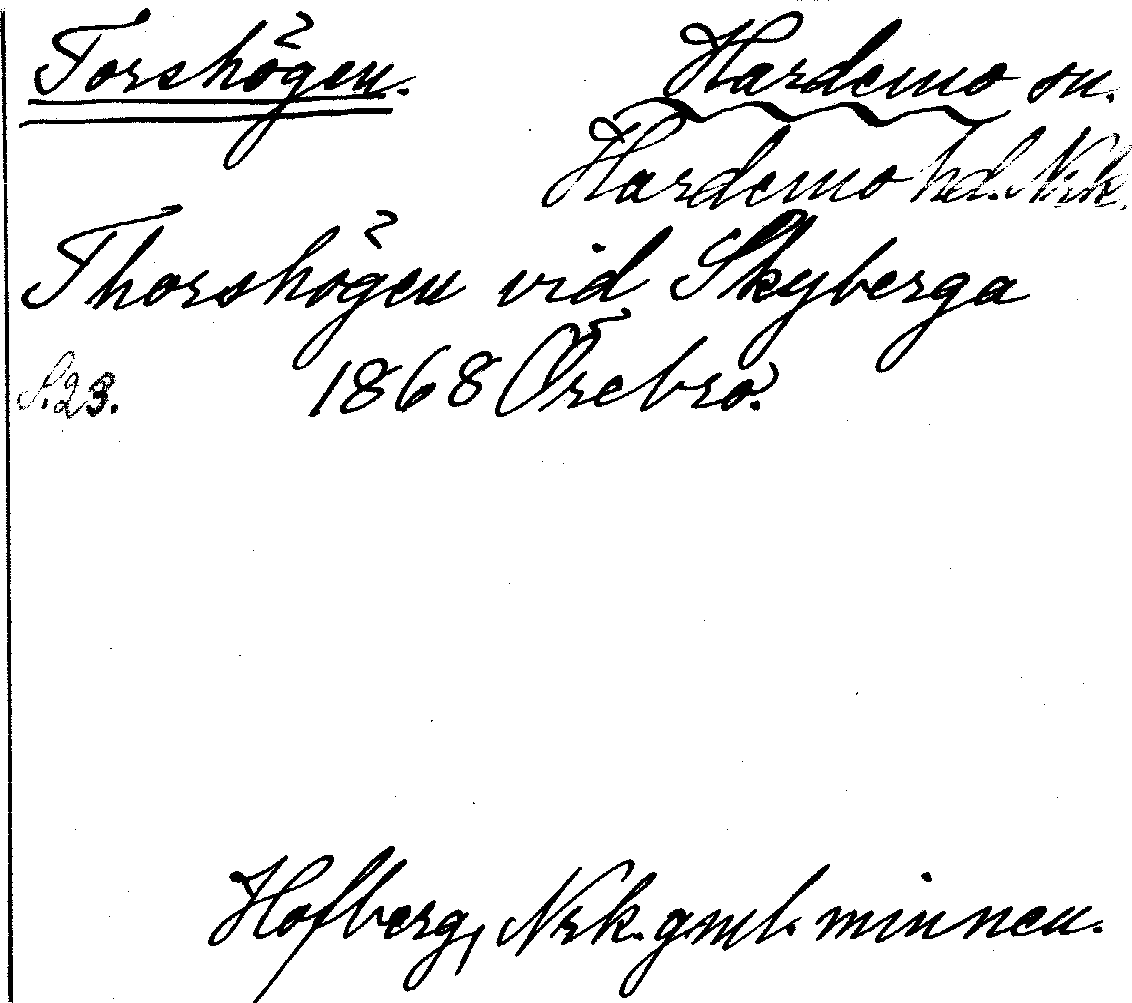 Torshögen. Hardemo sn.
Hardemo hd. Nrk.
Thorshögen vid Skyberga
S. 23. 1868 Örebro.
Hofberg, Nrk. gml. minnen.